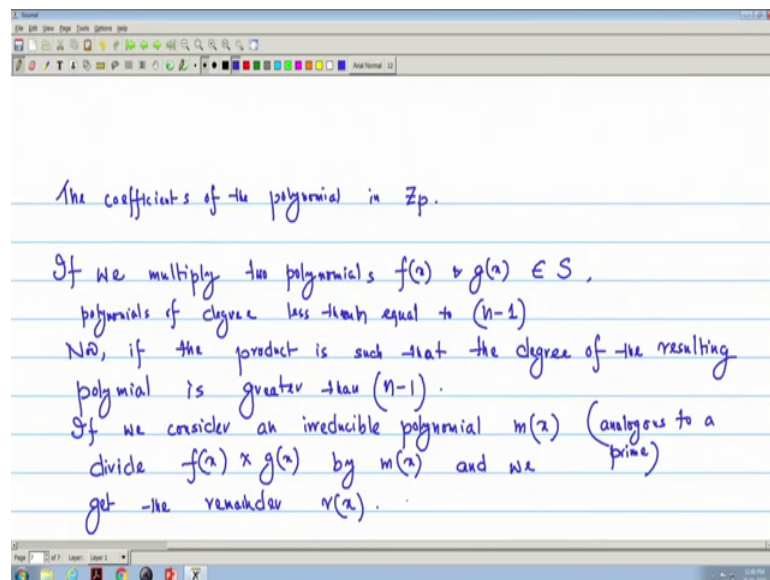 Journal
File Edit View Page Tools Options Help
Arial Normal 12
The coefficients of the polynomial in Zp.
If we multiply two polynomials f(x) & g(x) ∈ S,
polynomials of degree less than equal to (n-1)
Now, if the product is such that the degree of the resulting
polymial is greater than (n-1).
If we consider an irreducible polynomial m(x) (analogous to a
prime)
divide f(x) × g(x) by m(x) and we
get the remainder r(x).
Page 7 of 7 Layer: Layer 1